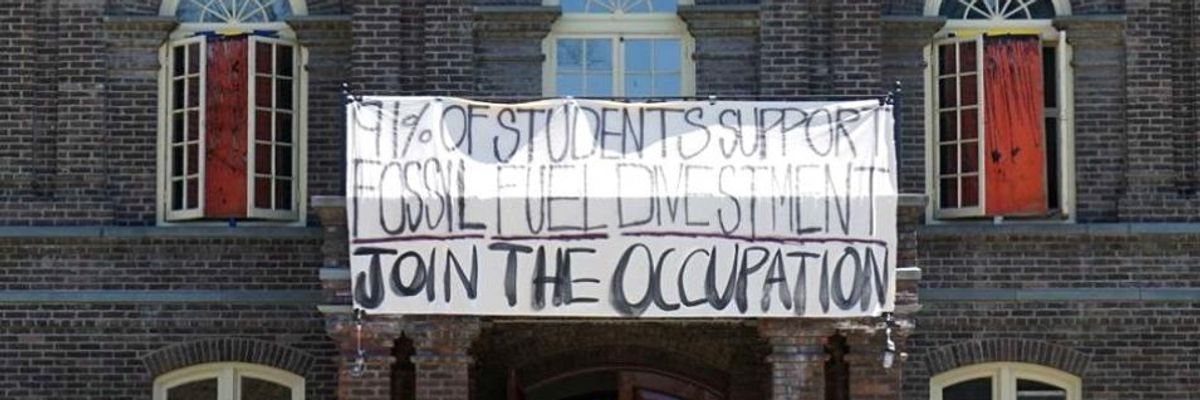 91% OF STUDENTS SUPPORT
FOSSIL FUEL DIVESTMENT
JOIN THE OCCUPATION